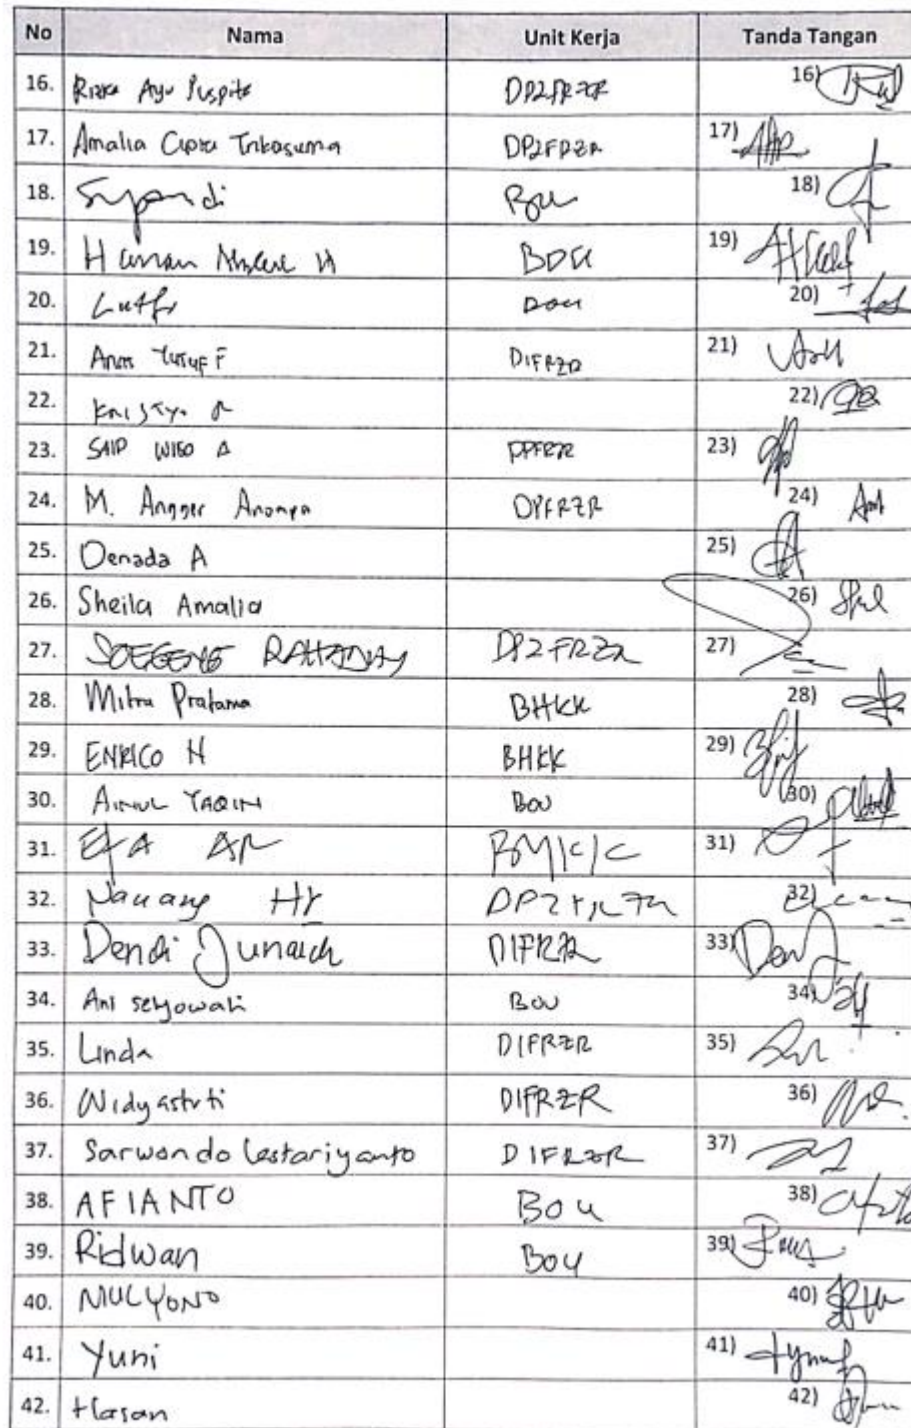 No Nama Unit Kerja Tanda Tangan
16. Rizka Ayu Puspita DP2FRZR 16)
17. Amalia Cipta Trikasuma DP2FRZR 17)
18. Supandi BOU 18)
19. H 19)
20. Lutfi BOU 20)
21. Anas Yusuf F DIFRZR 21)
22. 22)
23. SAID WIBO A DPFRZR 23)
24. M. Angger DPFRZR 24)
25. Denada A 25)
26. Sheila Amalia 26)
27. SOEGENG DP2FRZR 27)
28. Mitra Pratama BHKK 28)
29. ENRICO H BHKK 29)
30. AINUL YAQIN BOU 30)
31. 31)
32. Nanang HY DP2FRZR 32)
33. Dendi Junaidi DIFRZR 33)
34. Ani setyowati BOU 34)
35. Linda DIFRZR 35)
36. Widyastuti DIFRZR 36)
37. Sarwondo Lestariyanto DIFRZR 37)
38. AFIANTO BOU 38)
39. Ridwan BOU 39)
40. MULYONO 40)
41. Yuni 41)
42. Hasan 42)